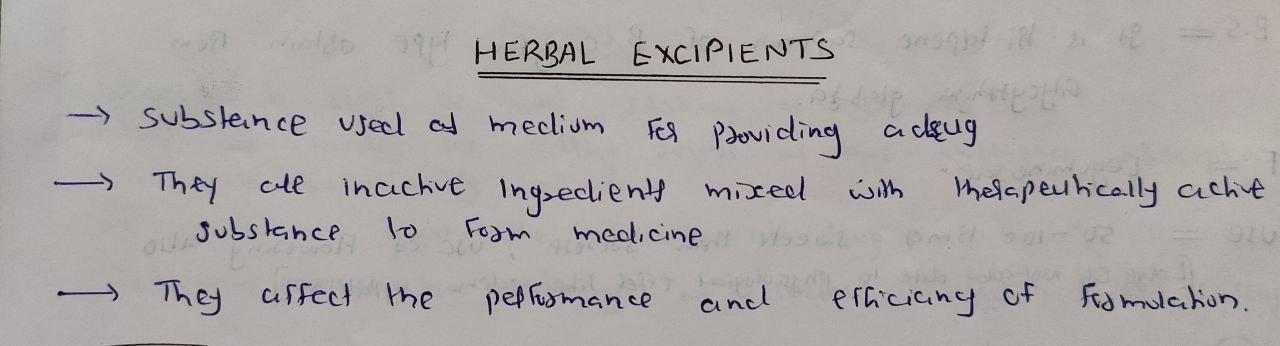 HERBAL EXCIPIENTS
→ substance used as medium for providing a drug
→ They are inactive Ingredients mixed with therapeutically active
substance to form medicine
→ They affect the performance and efficiency of formulation.